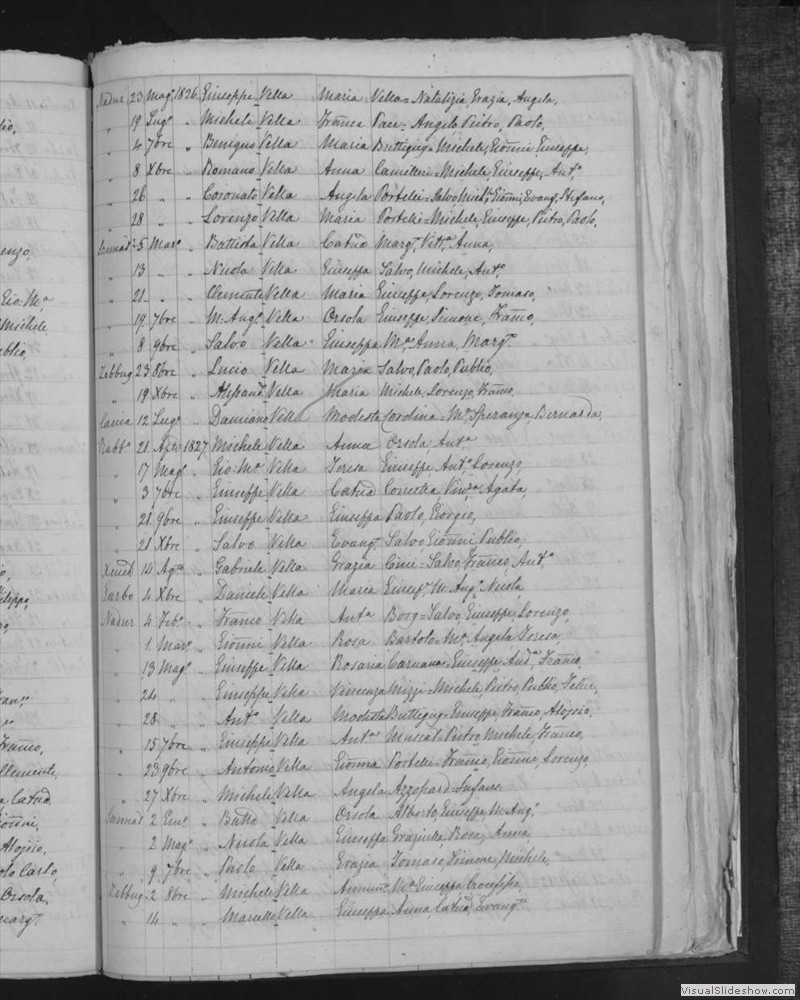 Nadur 23 Magº 1826 Giuseppe Vella Maria Vella = Natalizia, Grazia, Angela,
" 19 Lugº " Michele Vella Franca Pace = Angelo Pietro, Paolo,
" 4 7bre " Benigno Vella Maria Buttigieg = Michele, Gionni Giuseppe,
" 8 Xbre " Romano Vella Anna Camilleri = Michele, Giuseppe, Antº
" 26 " " Coronato Vella Angela Portelli = Salvo Mich: Gionni, Evang: Stefano,
" 28 " " Lorenzo Vella Maria Portelli = Michele, Giuseppe, Pietro, Paolo,
Sannat 5 Marº " Battista Vella Catna Margª Vittª Anna,
" 13 " " Nicola Vella Giuseppa Salvo, Michele, Antº
" 21 " " Clemente Vella Maria Giuseppe, Lorenzo, Tomaso,
" 19 7bre " M: Angº Vella Orsola Giuseppe, Simone, Franco,
" 8 9bre " Salvo Vella Giuseppa Mª Anna, Margª
Zebbug 23 8bre " Lucio Vella Maria Salvo, Paolo, Publio,
" 19 Xbre " Alessand: Vella Maria Michele, Lorenzo, Franco,
12 Lugº " Damiano Vella Modesta Cordina = Mª Speranza, Bernarda,
Rabbº 21 Aple 1827 Michele Vella Anna Orsola, Antª
" 17 Magº " Gio: Mª Vella Teresa Giuseppe, Antº Lorenzo,
" 3 7bre " Giuseppe Vella Catna Concetta, Vinzª Agata,
" 21 9bre " Giuseppe Vella Giuseppa Paolo, Giorgio,
" 21 Xbre " Salvo Vella Evangª Salvo Gionni Publio,
14 Agº " Gabriele Vella Grazia Cini = Salvo, Franco, Antº
Garbo 4 Xbre " Daniele Vella Maria Giusepº M: Angº Nicola,
Nadur 4 Febº " Franco Vella Antª Borg = Salvo, Giuseppe, Lorenzo,
" 1 Marº " Gionni Vella Rosa Bartolo = Mª Angela, Teresa,
" 13 Magº " Giuseppe Vella Rosaria Caruana = Giuseppe, Andª Franco,
" 24 " " Giuseppe Vella Vincenza Mizzi = Michele, Pietro, Publio, Felice,
" 28 " " Antº Vella Modesta Buttigieg = Giuseppe, Franco, Aloisio,
" 15 7bre " Giuseppe Vella Antª Muscat = Pietro, Michele, Franco,
" 23 9bre " Antonio Vella Gionna Portelli = Franco, Gionni, Lorenzo,
" 27 Xbre " Michele Vella Angela Azzopardi =
Sannat 2 Genº " Batta Vella Orsola Alberto, Giuseppe, M: Angº
" 2 Magº " Nicola Vella Giuseppa Graziella, Rosa, Anna
" 9 7bre " Paolo Vella Grazia Tomaso, Simone, Michele,
Zebbug 2 8bre " Michele Vella Annunª Mª Giuseppa Crocifissa,
" 14 " Marcello Vella Giuseppa Anna, Catna, Evangª
VisualSlideshow.com